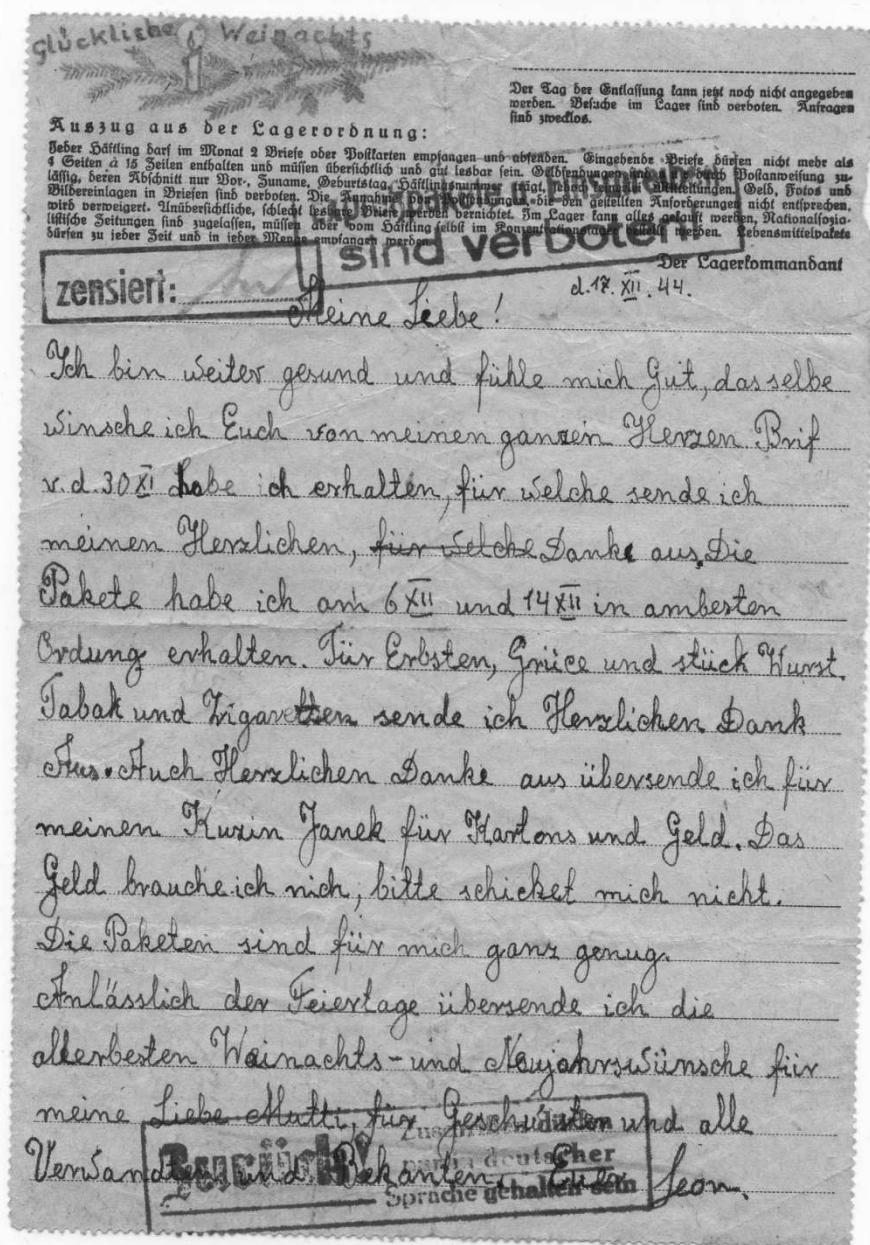 Glückliche Weinachts
Der Tag der Entlassung kann jetzt noch nicht angegeben
werden. Besuche im Lager sind verboten. Anfragen
sind zwecklos.
Auszug aus der Lagerordnung:
Jeder Häftling darf im Monat 2 Briefe oder Postkarten empfangen und absenden. Eingehende Briefe dürfen nicht mehr als
4 Seiten à 15 Zeilen enthalten und müssen übersichtlich und gut lesbar sein. Geldsendungen sind nur durch Postanweisung zu-
lässig, deren Abschnitt nur Vor-, Zuname, Geburtstag, Häftlingsnummer trägt, jedoch keine Mitteilungen. Geld, Fotos und
Bildereinlagen in Briefen sind verboten. Die Annahme von Postsendungen, die den gestellten Anforderungen nicht entsprechen,
wird verweigert. Unübersichtliche, schlecht lesbare Briefe werden vernichtet. Im Lager kann alles gekauft werden. Nationalsozia-
listische Zeitungen sind zugelassen, müssen aber vom Häftling selbst im Konzentrationslager bestellt werden. Lebensmittelpakete
dürfen zu jeder Zeit und in jeder Menge empfangen werden.
sind verboten!
Der Lagerkommandant
zensiert:
d. 17. XII. 44.
Meine Liebe!
Ich bin weiter gesund und fühle mich Gut, das selbe
winsche ich Euch von meinen ganzen Herzen. Brif
v. d. 30 XI habe ich erhalten, für welche sende ich
meinen Herzlichen, für welche Danke aus. Die
Pakete habe ich am 6 XII und 14 XII in ambesten
Ordung erhalten. Für Erbsten, Grüce und stück Wurst.
Tabak und Zigaretten sende ich Herzlichen Dank
Aus. Auch Herzlichen Danke aus übersende ich für
meinen Kuzin Janek für Kartons und Geld. Das
Geld brauche ich nich, bitte schicket mich nicht.
Die Paketen sind für mich ganz genug.
Anlässlich der Feiertage übersende ich die
allerbesten Wainachts- und Neujahrswünsche für
meine Liebe Mutti, für Geschwister und alle
Verwandten und Bekanten. Euer Leon.
Zurück!
deutscher
Sprache gehalten sein